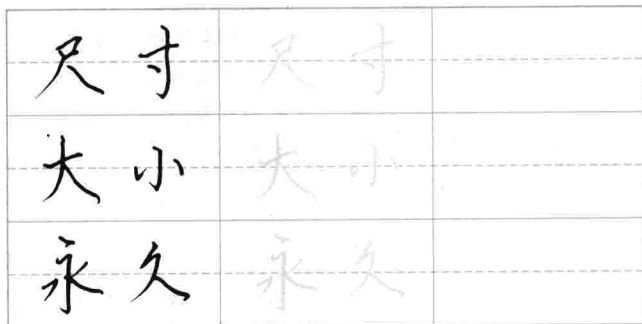 尺寸 尺寸
大小 大小
永久 永久